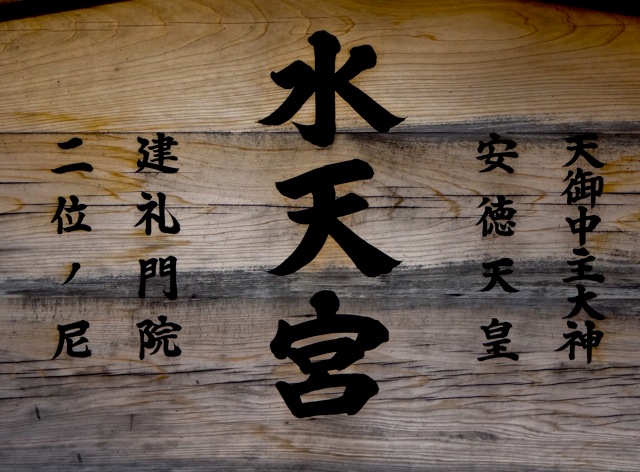 天御中主大神
安徳天皇
水天宮
建礼門院
二位ノ尼